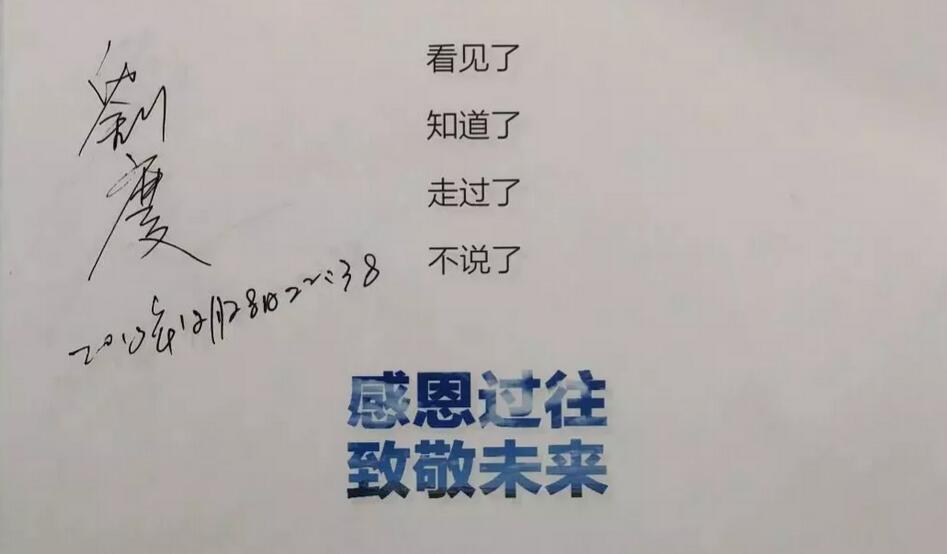 看见了
知道了
走过了
不说了
劉度
12月28日22:38
感恩过往
致敬未来